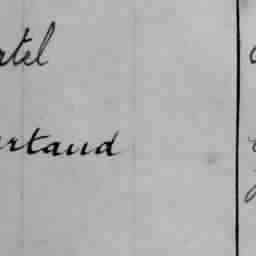 rtel
ertaud